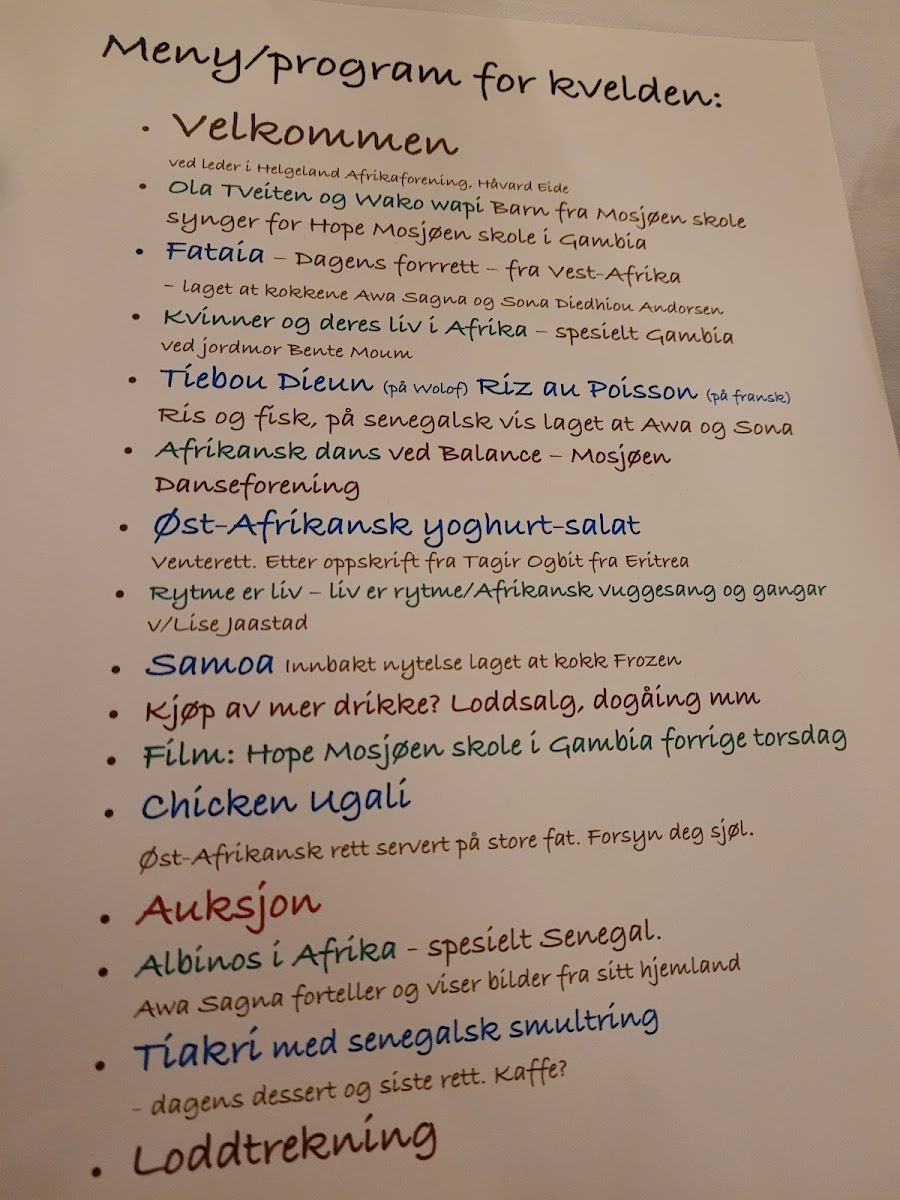 Meny/program for kvelden:
• Velkommen
ved leder i Helgeland Afrikaforening, Håvard Eide
• Ola Tveiten og Wako wapi Barn fra Mosjøen skole
synger for Hope Mosjøen skole i Gambia
• Fataia – Dagens forrrett – fra Vest-Afrika
– laget at kokkene Awa Sagna og Sona Diedhiou Andorsen
• Kvinner og deres liv i Afrika – spesielt Gambia
ved jordmor Bente Moum
• Tiebou Dieun (på Wolof) Riz au Poisson (på fransk)
Ris og fisk, på senegalsk vis laget at Awa og Sona
• Afrikansk dans ved Balance – Mosjøen
Danseforening
• Øst-Afrikansk yoghurt-salat
Venterett. Etter oppskrift fra Tagir Ogbit fra Eritrea
• Rytme er liv – liv er rytme/Afrikansk vuggesang og gangar
v/Lise Jaastad
• Samoa Innbakt nytelse laget at kokk Frozen
• Kjøp av mer drikke? Loddsalg, dogåing mm
• Film: Hope Mosjøen skole i Gambia forrige torsdag
• Chicken Ugali
Øst-Afrikansk rett servert på store fat. Forsyn deg sjøl.
• Auksjon
• Albinos i Afrika - spesielt Senegal.
Awa Sagna forteller og viser bilder fra sitt hjemland
• Tiakri med senegalsk smultring
- dagens dessert og siste rett. Kaffe?
• Loddtrekning